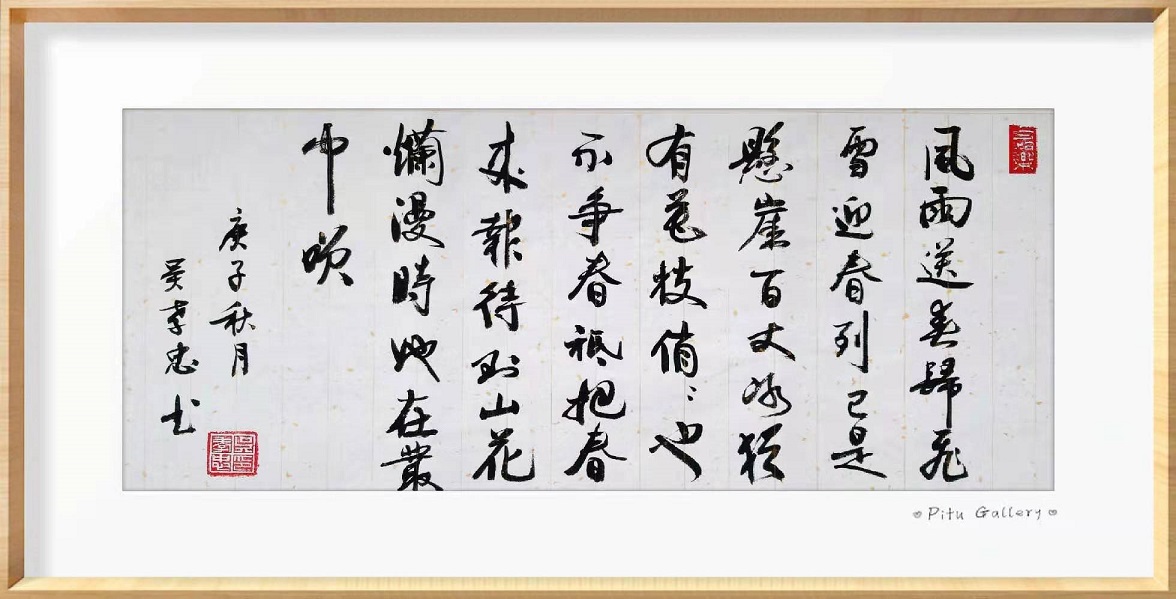 風雨送春歸飛
雪迎春到已是
懸崖百丈冰猶
有花枝俏〻也
不爭春祇把春
來報待到山花
爛漫時她在叢
中笑
庚子秋月
吴孝忠书
Pitu Gallery